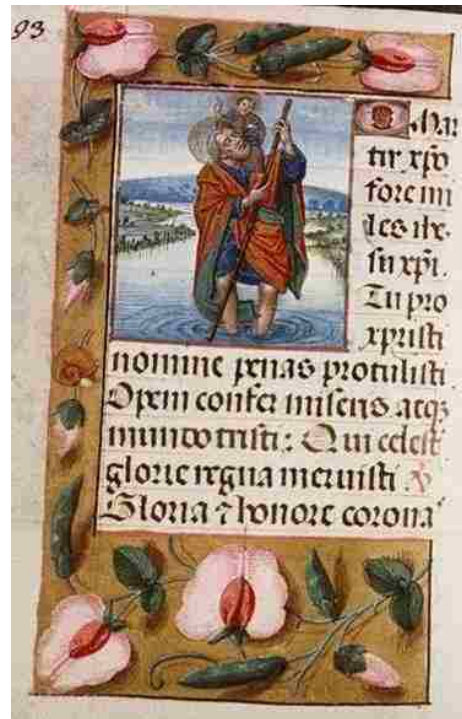 93
O Mar
tir xp̄o
fore mi
les ihe
su xp̄i.
Tu pro
xpristi
nomine penas protulisti
Opem confer miseris atqꝫ
mundo tristi: Qui celest
glorie regna meruisti ℣
Gloria ⁊ honore corona